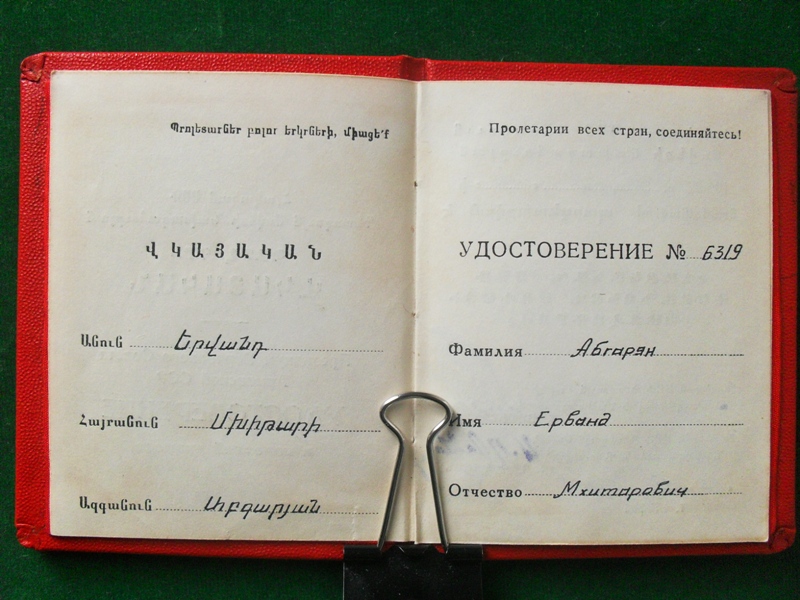 Պրոլետարներ բոլոր երկրների, միացե՛ք
ՎԿԱՅԱԿԱՆ
Անուն Երվանդ
Հայրանուն Մխիթարի
Ազգանուն Աբգարյան
Пролетарии всех стран, соединяйтесь!
УДОСТОВЕРЕНИЕ № 6319
Фамилия Абгарян
Имя Ерванд
Отчество Мхитарович